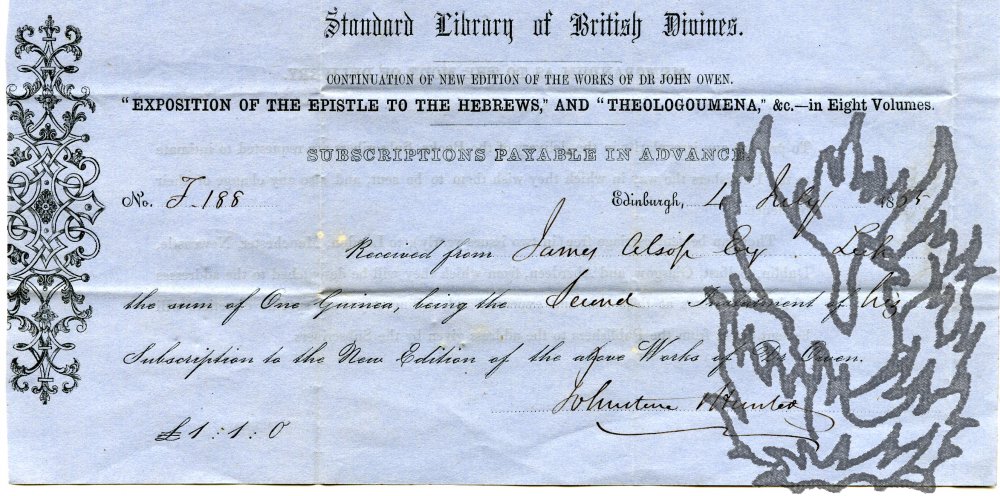 Standard Library of British Divines.
CONTINUATION OF NEW EDITION OF THE WORKS OF DR JOHN OWEN.
"EXPOSITION OF THE EPISTLE TO THE HEBREWS," AND "THEOLOGOUMENA," &c.—in Eight Volumes.
SUBSCRIPTIONS PAYABLE IN ADVANCE.
No. F.188 Edinburgh, 4 July 1855
Received from James Alsop Esq Leek
the sum of One Guinea, being the Second Instalment of his
Subscription to the New Edition of the above Works of Dr Owen.
Johnstone & Hunter
£1:1:0